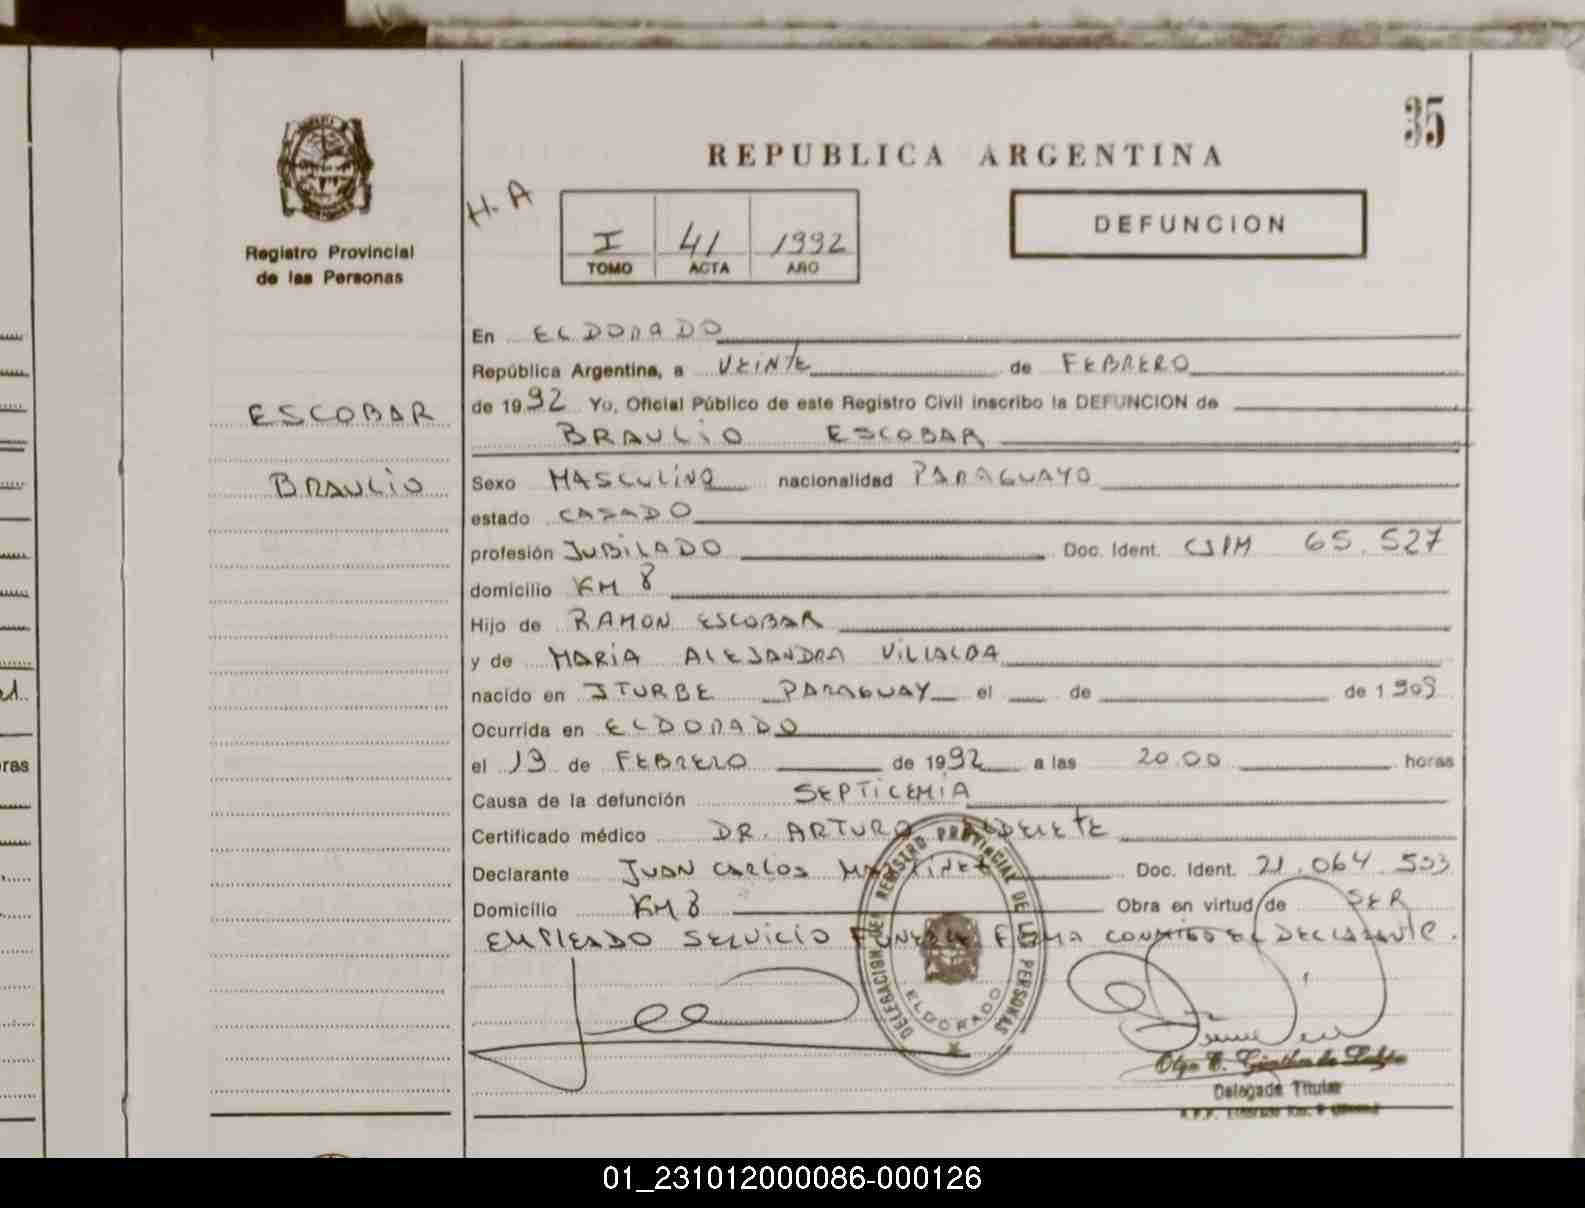 35
REPUBLICA ARGENTINA
H. A
DEFUNCION
I 41 1992
TOMO ACTA AÑO
Registro Provincial
de las Personas
ESCOBAR
BRAULIO
En ELDORADO
República Argentina, a VEINTE de FEBRERO
de 1992 Yo, Oficial Público de este Registro Civil inscribo la DEFUNCION de
BRAULIO ESCOBAR
Sexo MASCULINO nacionalidad PARAGUAYO
estado CASADO
profesión JUBILADO Doc. Ident. CIPM 65.527
domicilio KM 8
Hijo de RAMON ESCOBAR
y de MARIA ALEJANDRA VILLALBA
nacido en ITURBE PARAGUAY el de de 1909
Ocurrida en ELDORADO
el 13 de FEBRERO de 1992 a las 20.00 horas
Causa de la defunción SEPTICEMIA
Certificado médico DR. ARTURO
Declarante JUAN CARLOS MARTINEZ Doc. Ident. 21.064.553
Domicilio KM 8 Obra en virtud de SER
EMPLEADO SERVICIO FUNEBRE FIRMA CONMIGO EL DECLARANTE.
DELEGACION DEL REGISTRO PROVINCIAL DE LAS PERSONAS
ELDORADO
Olga E. Günther de
Delegada Titular
R.P.P. Eldorado Km. 9
ras
01_231012000086-000126